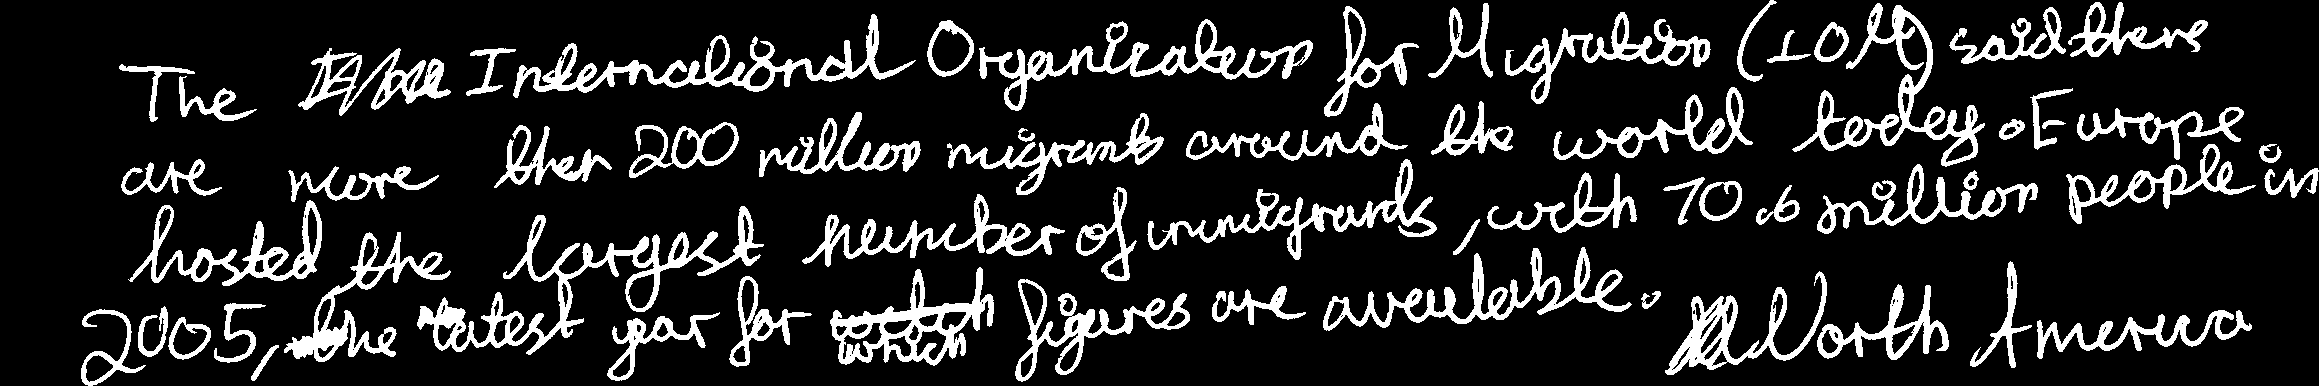 The International Organization for Migration (IOM) said there
are more then 200 million migrants around the world today. Europe
hosted the largest number of immigrants, with 70.6 million people in
2005, the latest year for which figures are available. North America